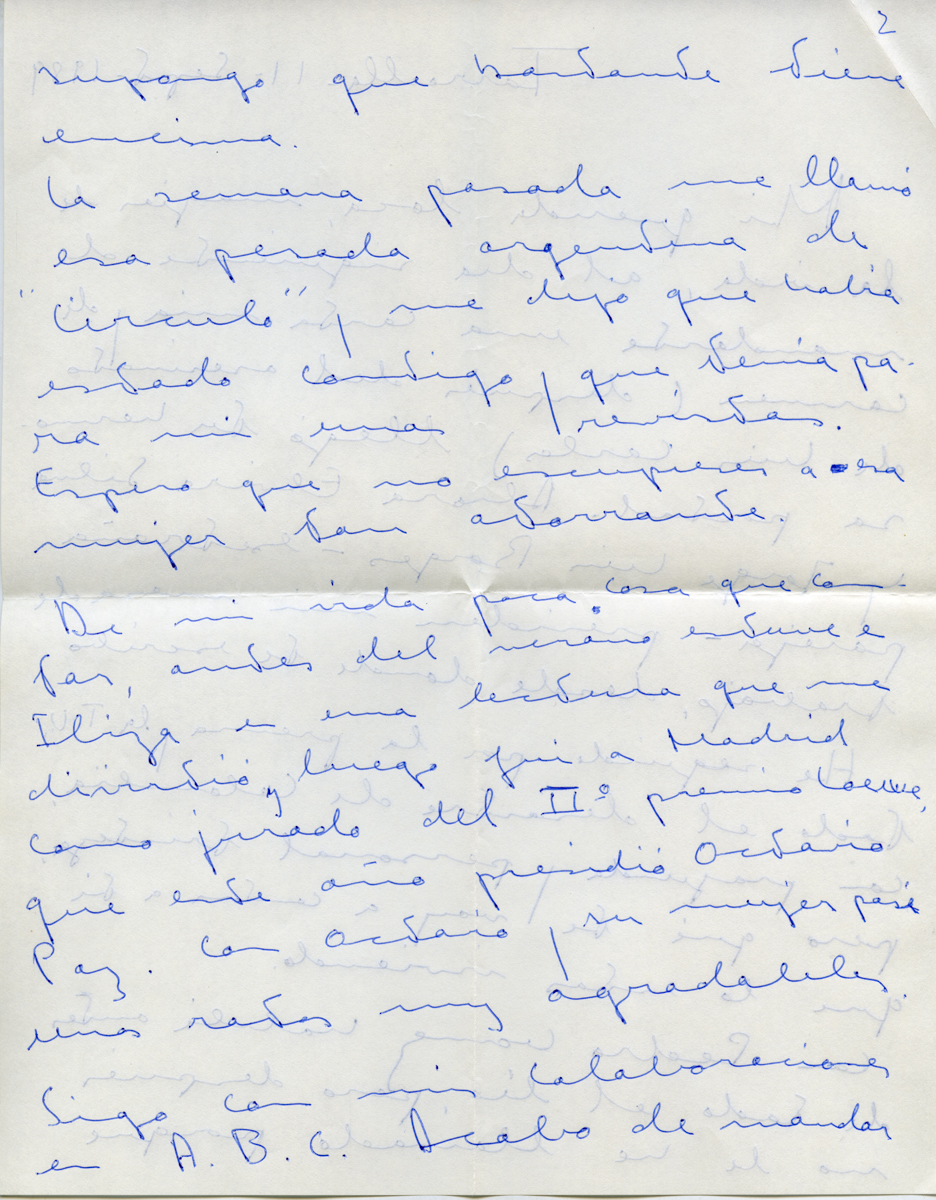 2
supongo que bastante tiene
encima.
La semana pasada me llamó
esa pesada argentina de
"Círculo" y me dijo que había
estado contigo y que tenía pa-
ra mi unas revistas.
Espero que no escupieses a esa
mujer tan atorrante.
De mi vida poca cosa que con-
tar, antes del verano estuve e
Ibiza en una lectura que me
divirtió y luego fui a Madrid
como jurado del IIº premio Loewe,
que este año presidió Octavio
Paz. Con Octavio y su mujer pasé
unos ratos muy agradables.
Sigo con mis colaboraciones
en A.B.C. Acabo de mandar